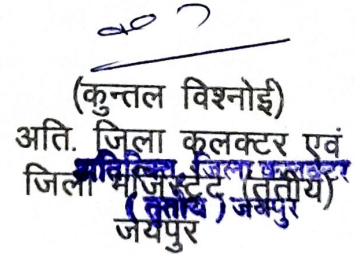 (कुन्तल विश्नोई)
अति. जिला कलक्टर एवं
जिला मजिस्ट्रेट (तृतीय)
जयपुर
अतिरिक्त जिला कलक्टर
(तृतीय) जयपुर